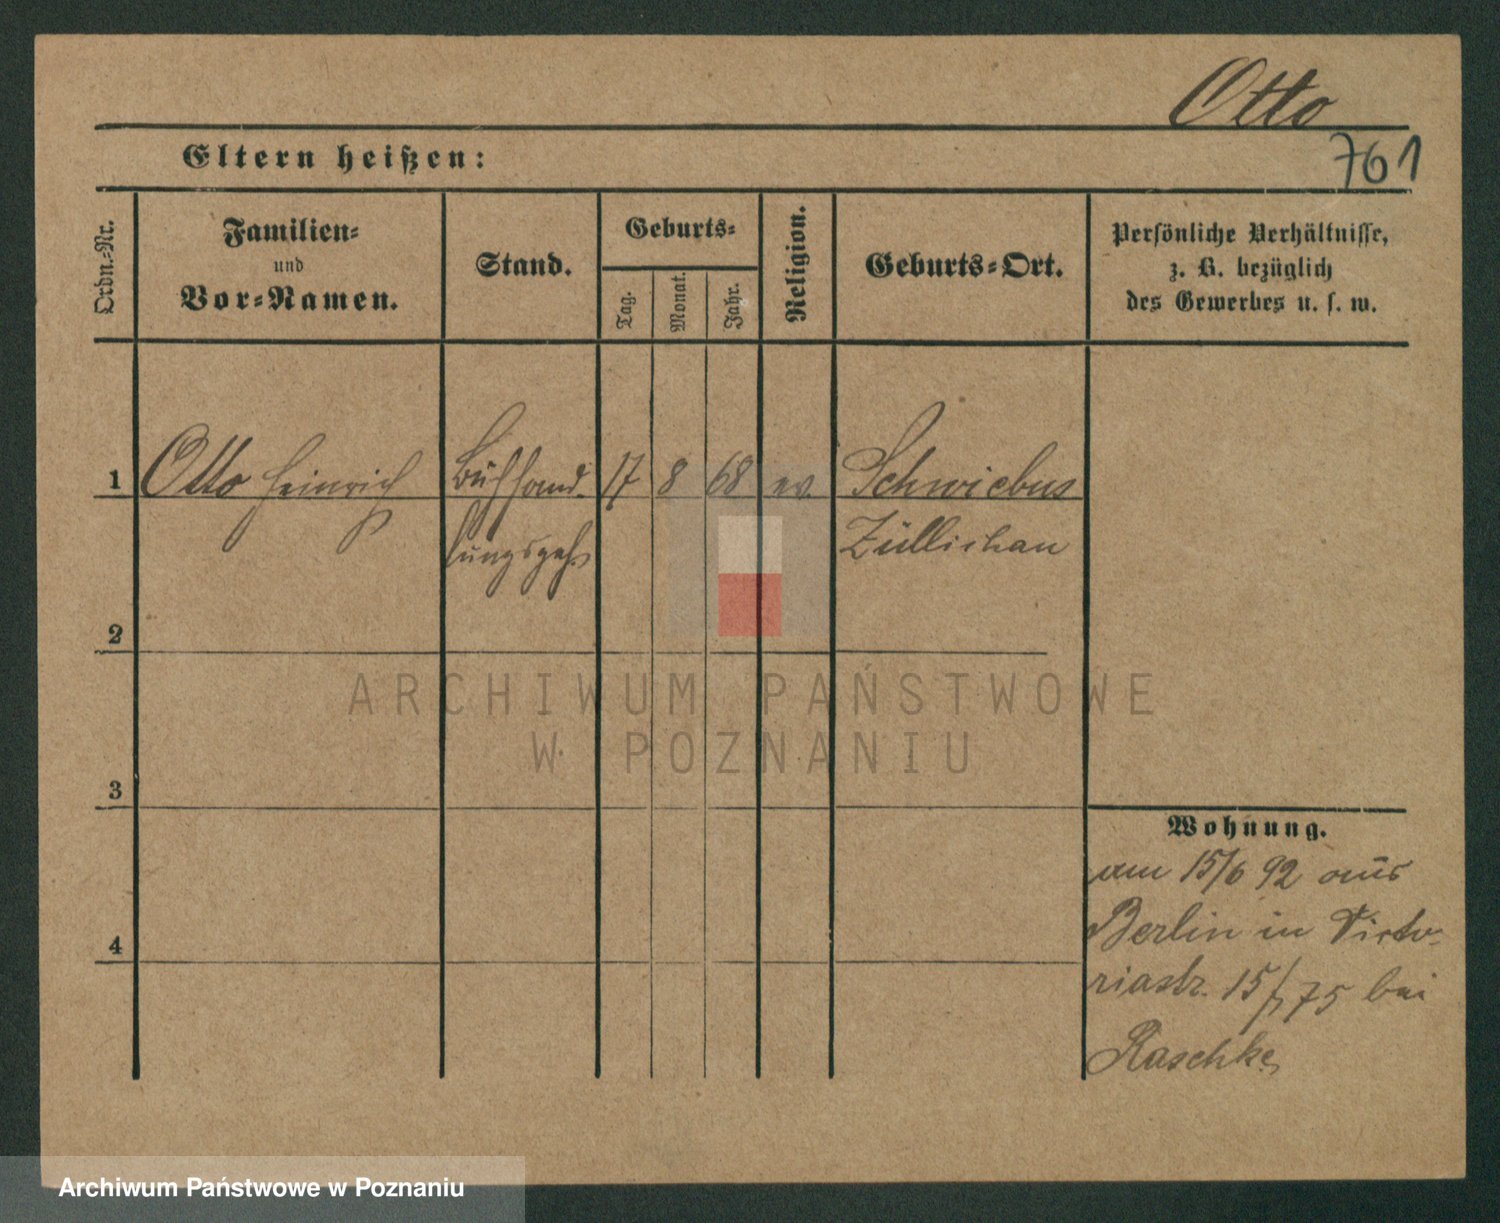 Otto
761
Eltern heißen:
Ordn.-Nr.
Familien-
und
Vor-Namen.
Stand.
Geburts-
Tag.
Monat.
Jahr.
Religion.
Geburts-Ort.
Persönliche Verhältnisse,
z. B. bezüglich
des Gewerbes u. s. w.
1 Otto Heinrich Buchhand- 17 8 68 ev. Schwiebus
lungsgeh. Züllichau
2
3
4
Wohnung.
am 15/6 92 aus
Berlin in Victo-
riastr. 15/ 75 bei
Raschke
ARCHIWUM PAŃSTWOWE
W POZNANIU
Archiwum Państwowe w Poznaniu